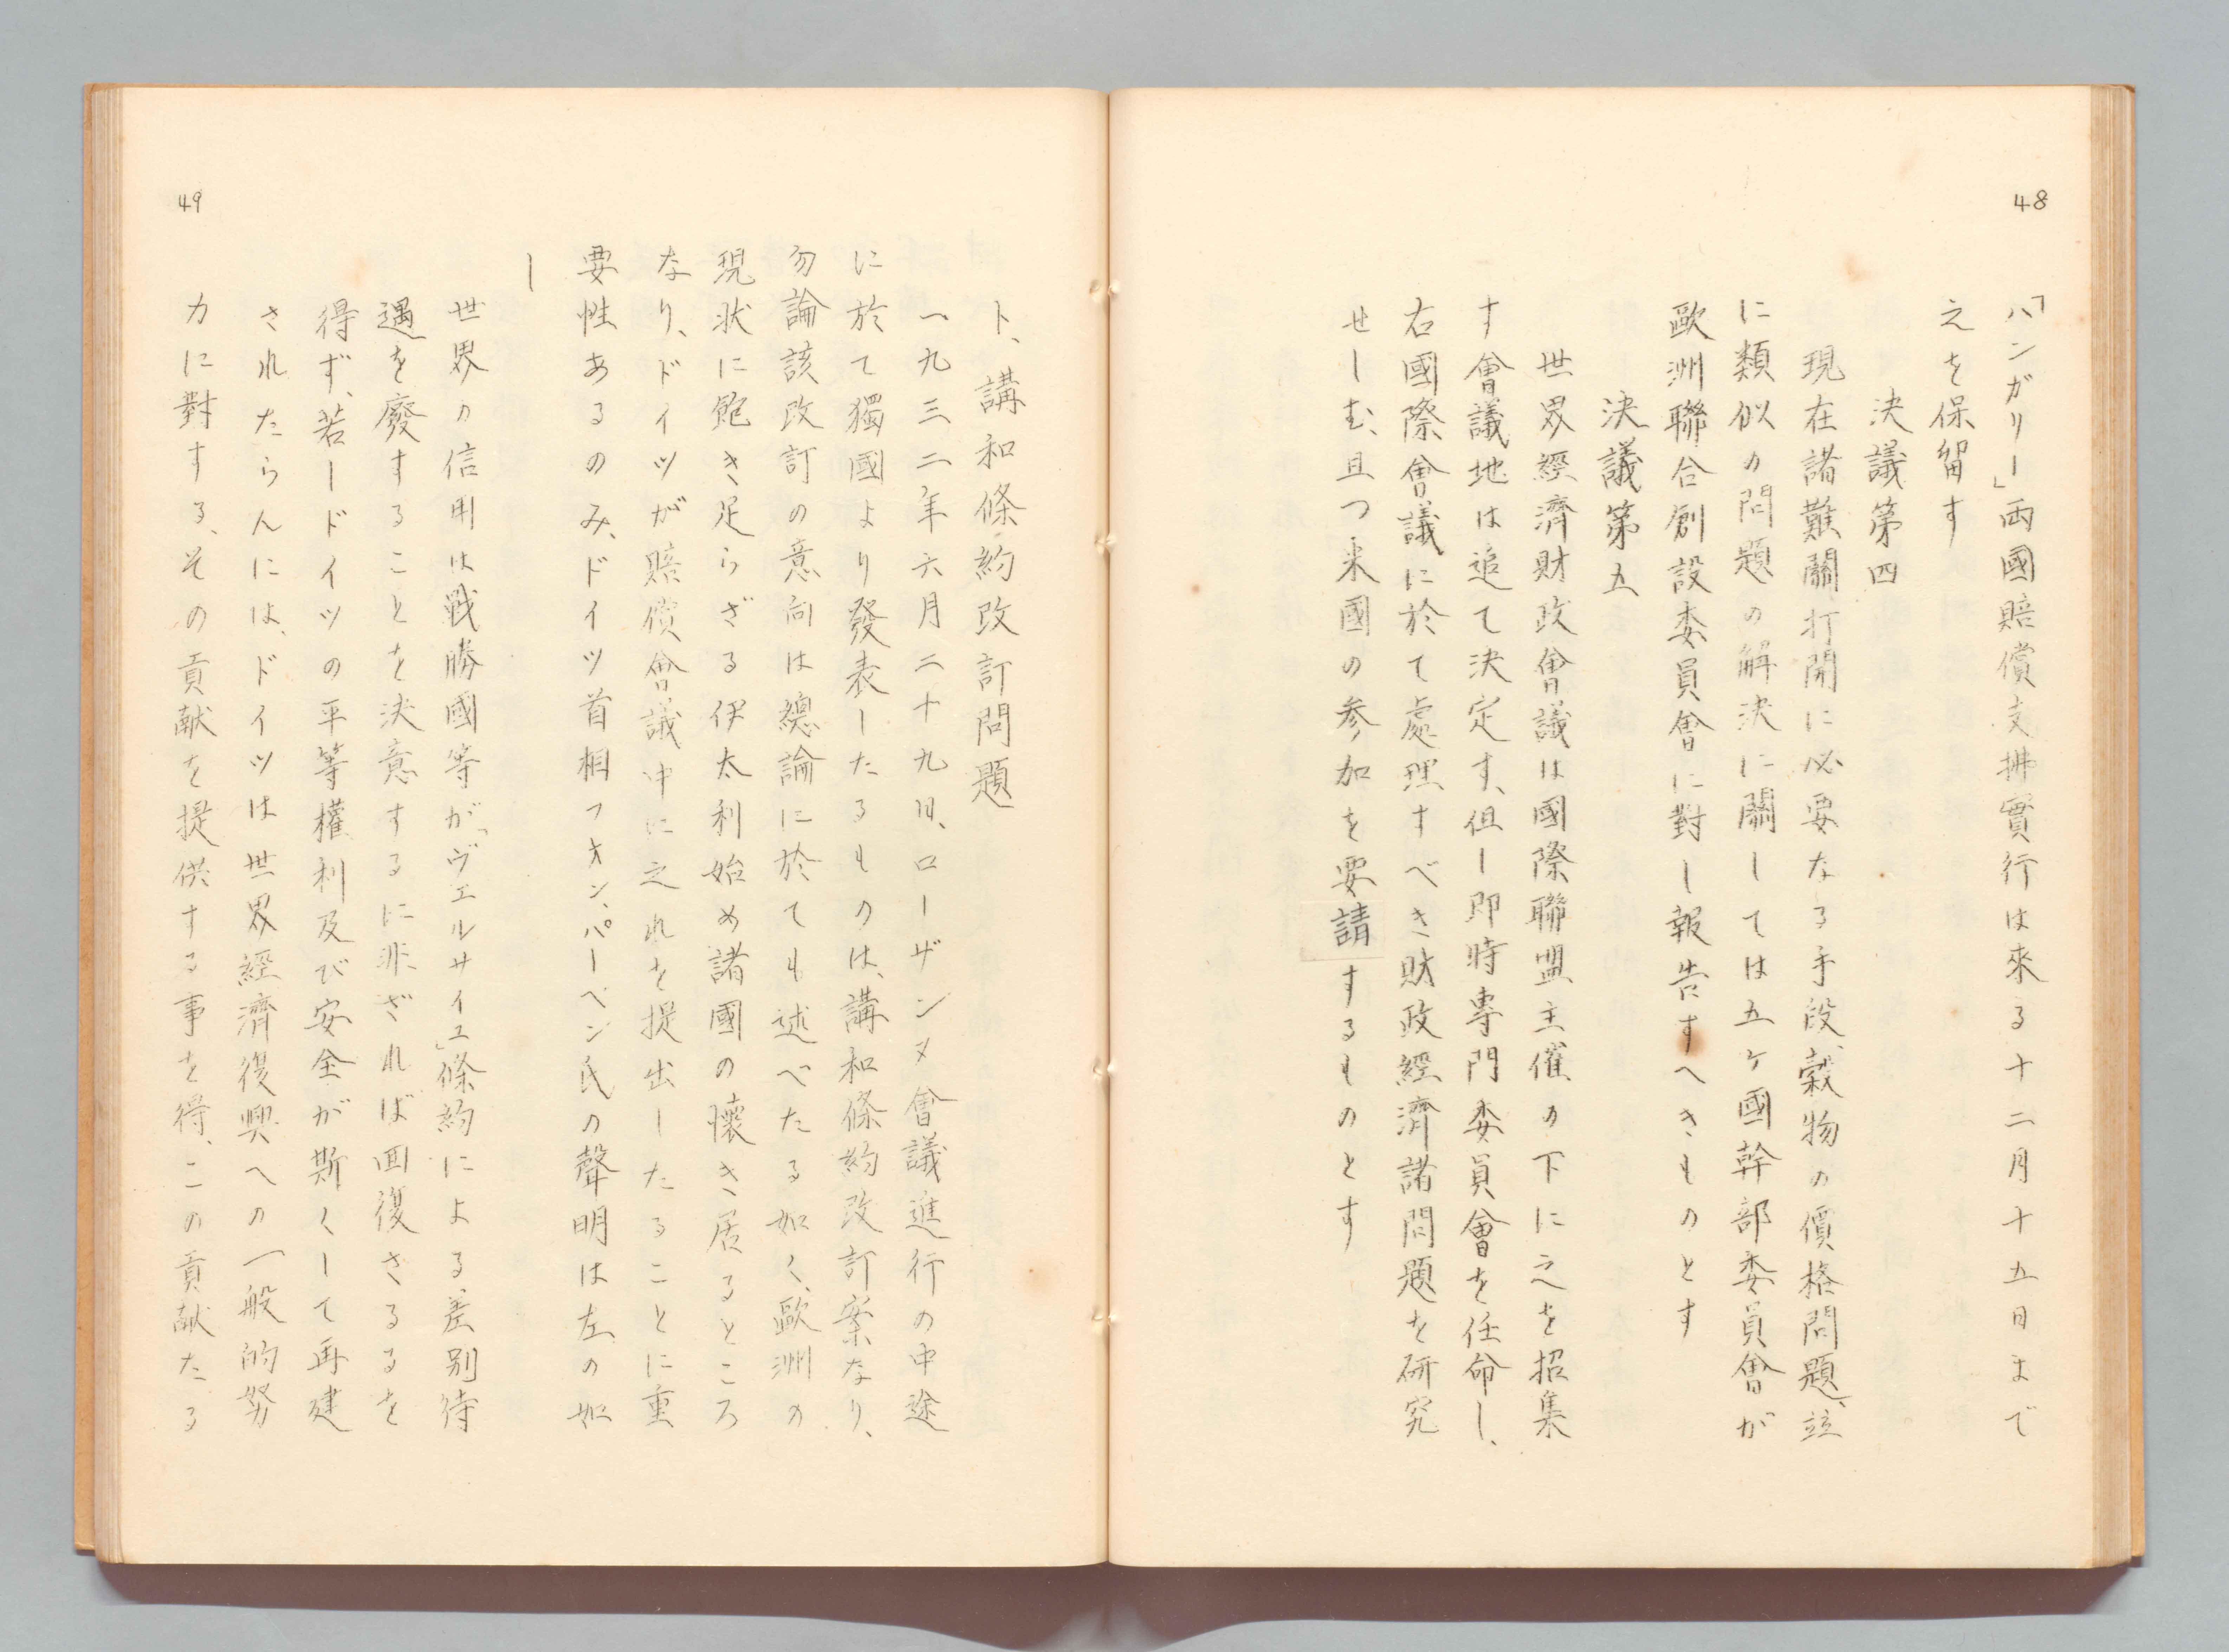 48
「ハンガリー」両國賠償支拂實行は來る十二月十五日まで
之を保留す
決議第四
現在諸難關打開に必要なる手段、穀物の價格問題、竝
に類似の問題の解決に關しては五ヶ國幹部委員會が
歐洲聯合創設委員會に對し報告すへきものとす
決議第五
世界經濟財政會議は國際聯盟主催の下に之を招集
す會議地は追て決定す、但し即時專門委員會を任命し、
右國際會議に於て處理すべき財政經濟諸問題を研究
せしむ、且つ米國の参加を要請するものとす
ト、講和條約改訂問題
一九三二年六月二十九日、ローザンヌ會議進行の中途
に於て獨國より發表したるものは、講和條約改訂案なり、
勿論該改訂の意向は總論に於ても述べたる如く、歐洲の
現状に飽き足らざる伊太利始め諸國の懐き居るところ
なり、ドイツが賠償會議中に之れを提出したることに重
要性あるのみ、ドイツ首相フオン、パーペン氏の聲明は左の如
し
世界の信用は戰勝國等が「ヴエルサイユ」條約による差別待
遇を廢することを決意するに非ざれば回復さるるを
得ず、若しドイツの平等權利及び安全が斯くして再建
されたらんには、ドイツは世界經濟復興への一般的努
力に對する、その貢献を提供する事を得、この貢献たる
49